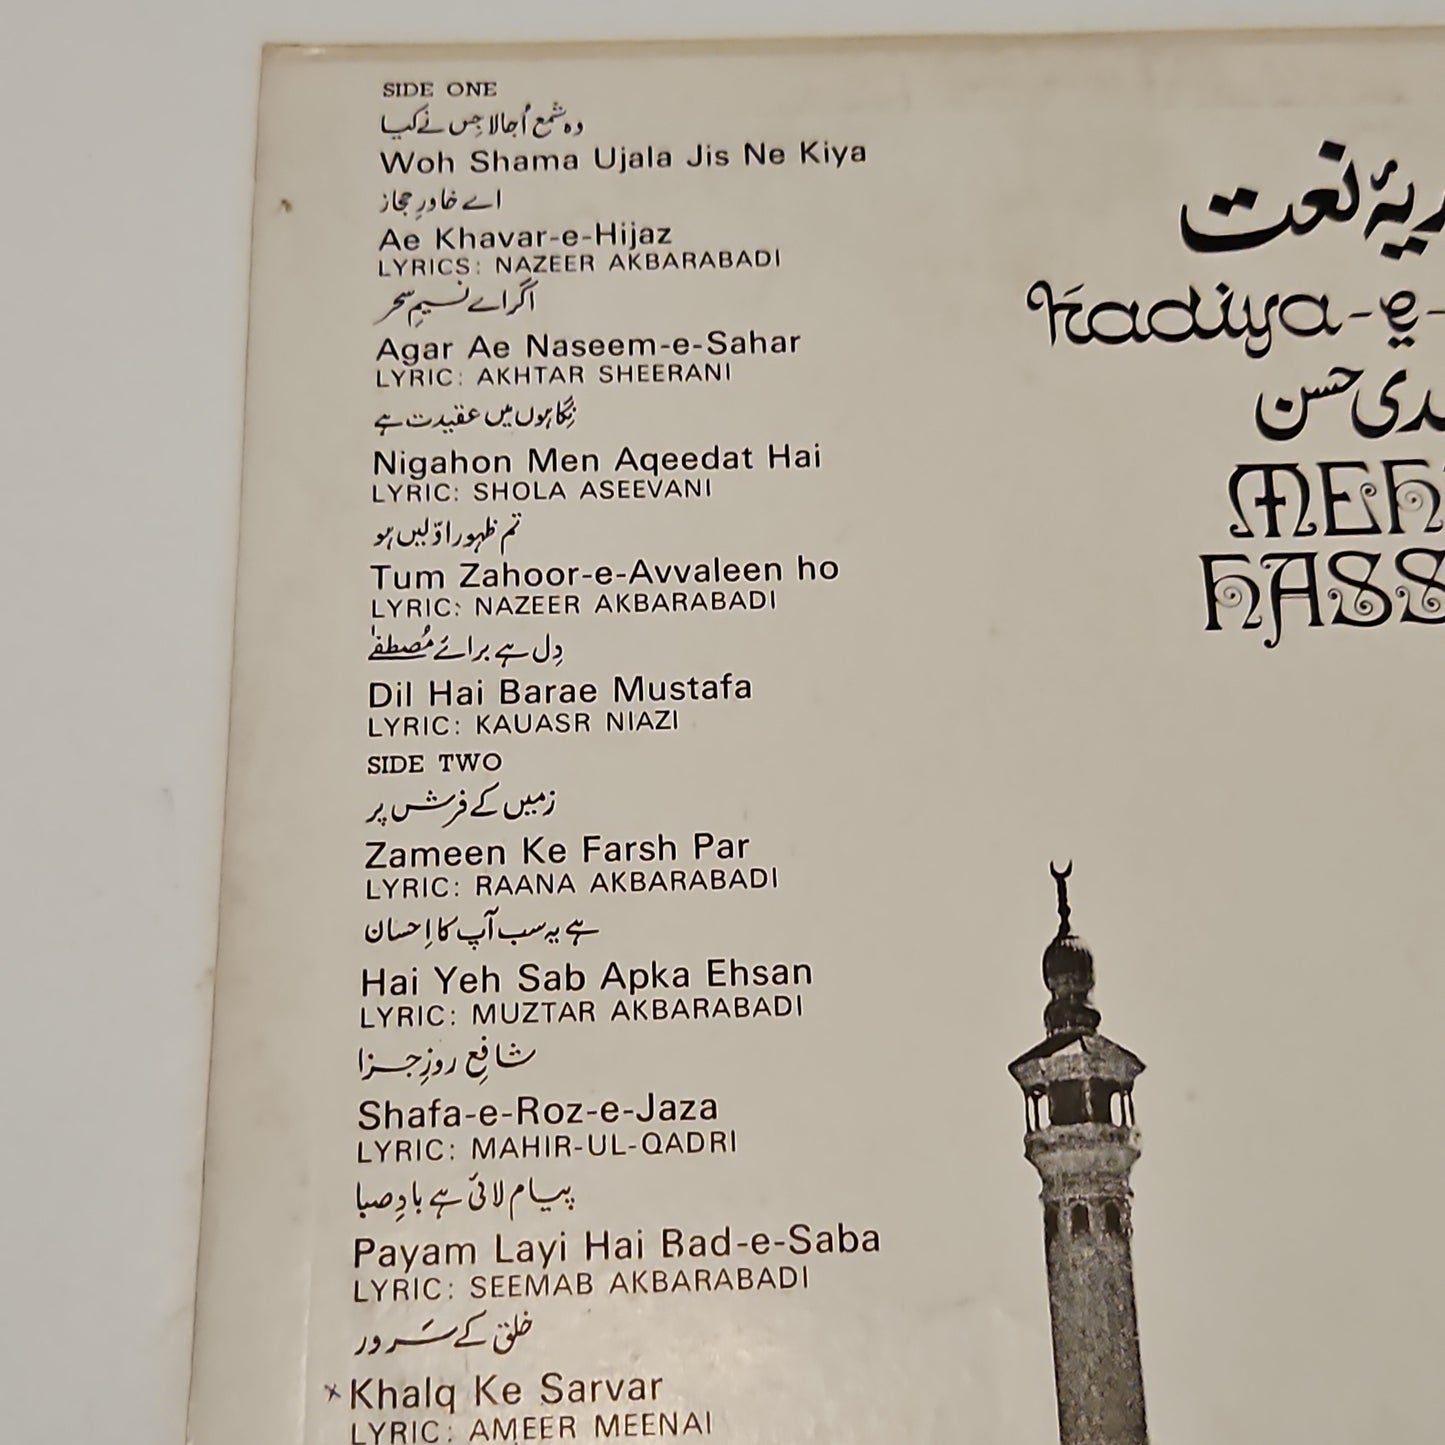 SIDE ONE
وہ شمع اُجالا جِس نے کیا
Woh Shama Ujala Jis Ne Kiya
اے خاورِ حجاز
Ae Khavar-e-Hijaz
LYRICS: NAZEER AKBARABADI
اگر اے نسیمِ سحر
Agar Ae Naseem-e-Sahar
LYRIC: AKHTAR SHEERANI
نِگاہوں میں عقیدت ہے
Nigahon Men Aqeedat Hai
LYRIC: SHOLA ASEEVANI
تم ظہور اوّلیں ہو
Tum Zahoor-e-Avvaleen ho
LYRIC: NAZEER AKBARABADI
دِل ہے برائے مُصطفےٰ
Dil Hai Barae Mustafa
LYRIC: KAUASR NIAZI
SIDE TWO
زمیں کے فرش پر
Zameen Ke Farsh Par
LYRIC: RAANA AKBARABADI
ہے یہ سب آپ کا اِحسان
Hai Yeh Sab Apka Ehsan
LYRIC: MUZTAR AKBARABADI
شافِع روزِ جزا
Shafa-e-Roz-e-Jaza
LYRIC: MAHIR-UL-QADRI
پیام لائی ہے بادِ صبا
Payam Layi Hai Bad-e-Saba
LYRIC: SEEMAB AKBARABADI
خلق کے سَرور
Khalq Ke Sarvar
LYRIC: AMEER MEENAI
نعت
Hadiya-e-
حسن
MEH
HASS